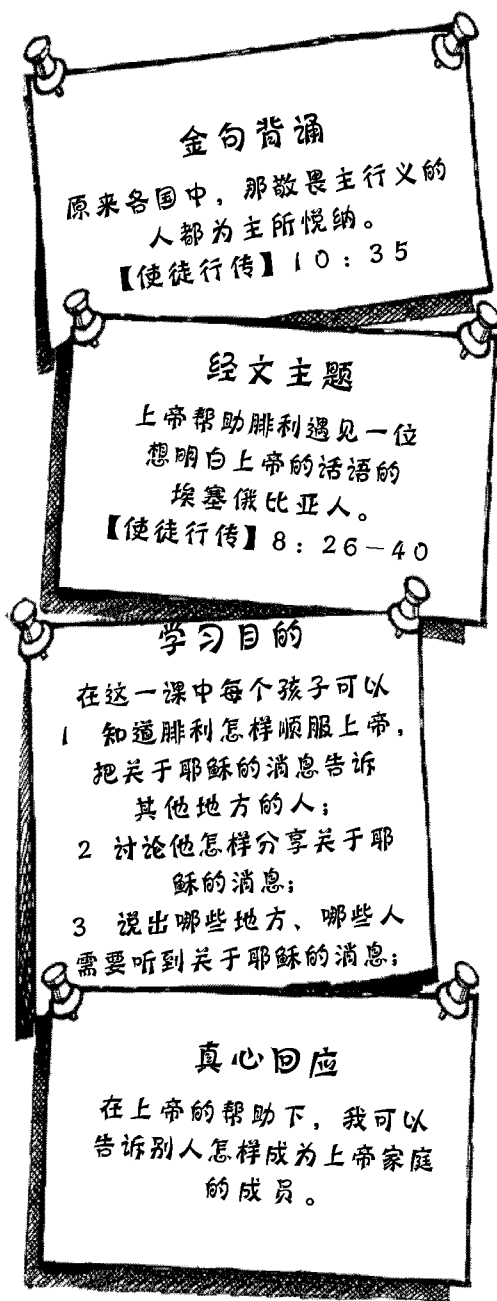 金句背诵
原来各国中，那敬畏主行义的
人都为主所悦纳。
【使徒行传】10：35
经文主题
上帝帮助腓利遇见一位
想明白上帝的话语的
埃塞俄比亚人。
【使徒行传】8：26－40
学习目的
在这一课中每个孩子可以
1 知道腓利怎样顺服上帝，
把关于耶稣的消息告诉
其他地方的人；
2 讨论他怎样分享关于耶
稣的消息；
3 说出哪些地方、哪些人
需要听到关于耶稣的消息；
真心回应
在上帝的帮助下，我可以
告诉别人怎样成为上帝家庭
的成员。